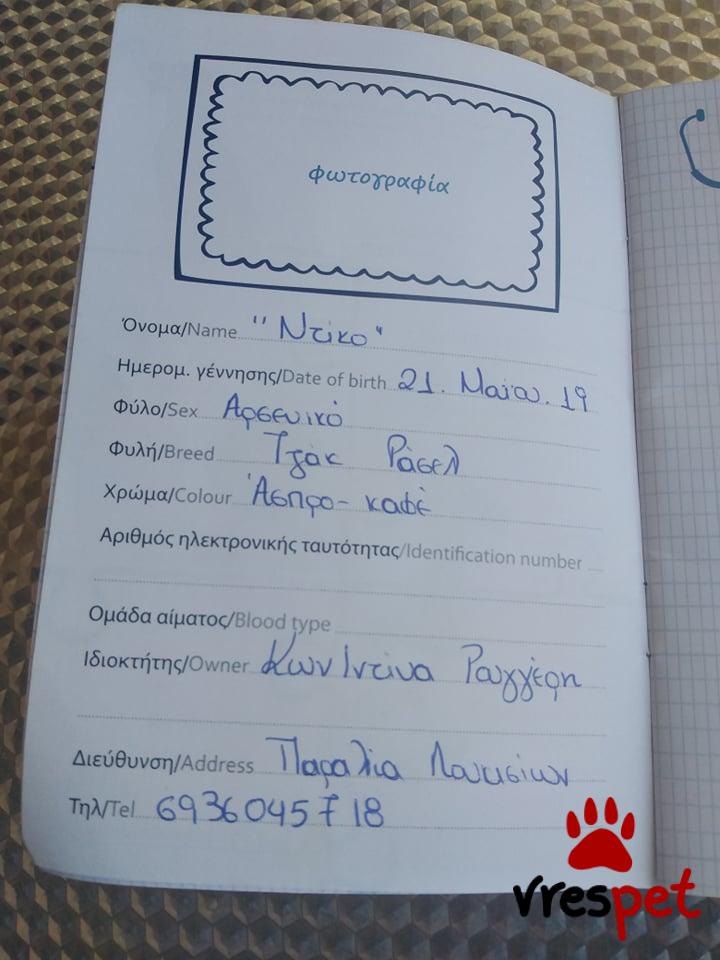 φωτογραφία
Όνομα/Name "Ντίκο"
Ημερομ. γέννησης/Date of birth 21. Μαΐου. 19
Φύλο/Sex Αρσενικό
Φυλή/Breed Τζακ Ράσελ
Χρώμα/Colour Άσπρο - καφέ
Αριθμός ηλεκτρονικής ταυτότητας/Identification number
Ομάδα αίματος/Blood type
Ιδιοκτήτης/Owner Κων/ντίνα
Διεύθυνση/Address Παραλία
Τηλ/Tel 6936045718
vrespet